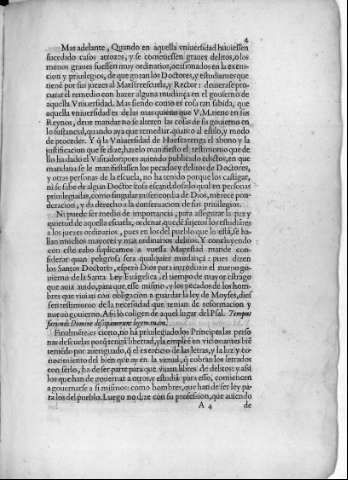 4
Mas adelante, Quando en aquella vniuersidad huuiessen
sucedido casos atrozes, y se cometiessen graues delitos, o los
menos graues fuessen muy ordinarios, ocasionados en la exem-
cion y priuilegios, de que gozan los Doctores, y estudiantes que
tiene por sus juezes al Maestrescuela, y Rector: deuerase pro-
curar el remedio con hazer alguna mudança en el gouierno de
aquella Vniuersidad. Mas siendo como es cosa tan sabida, que
aquella vniuersidad es de las mas quietas que V.M. tiene en sus
Reynos, deue mandar no se alteren las cosas de su gouierno en
lo sustancial, quando aya que remediar, quanto al estilo, y modo
de proceder. Y q̃ la Vniuersidad de Huesca tenga el abono y la
justificacion que se dize, haze lo manifiesto el testimonio que de
llo ha dado el Visitador: pues auiendo publicado edictos, en que
mandaua se le manifestassen los pecados y delitos de Doctores,
y otras personas de la escuela, no ha tenido porque los castigar,
ni se sabe de algun Doctor cosa escandalosa: lo qual en personas
priuilegiadas, como singular misericordia de Dios, merece pon-
deracion, y da derecho a la conseruacion de sus priuilegios.
Ni puede ser medio de importancia, para assegurar la paz y
quietud de aquella escuela, ordenar que sugetos los estudiãtes
a los juezes ordinarios, pues en los del pueblo que lo està, se ha-
llan muchos mayores y mas ordinarios delitos. Y concluyendo
con esto zabo suplicamos a vuessa Magestad mande con-
siderar quan peligrosa sera qualquier mudança: pues dizen
los Santos Doctores, esperò Dios para introduzir el nueuo go-
uierno de la Santa Ley Euãgelica, el tiempo de mayor estrago
que auia auido, para que esse mismo, y los pecados de los hom-
bres que viuian con obligacion a guardar la ley de Moyses, dies-
sen testimonio de la necessidad que tenian de reformacion y
nueuo gouierno. Assi lo coligen de aquel lugar del Psal. Tempus
faciendi Domine dissipauerunt legem tuam.
Finalmẽte es cierto, no ha priuilegiado los Principes las perso-
nas de escuelas porq̃ tengã libertad, y la empleẽ en vicios antes hã
tenido por aueriguado, q̃ el exercicio de las letras, y la luz y co-
nocimiento del bien que ay en la virtud, q̃ cobran los letrados
con serlo, ha de ser parte para que viuan libres de delitos: y assi
los que han de gouernar a otros, y estudiã para esso, comiencen
a gouernarse a si mismos: como hombres, que han de ser ley pa-
ra los del pueblo. Luego no dize con su profession, que auiendo
A 4 de